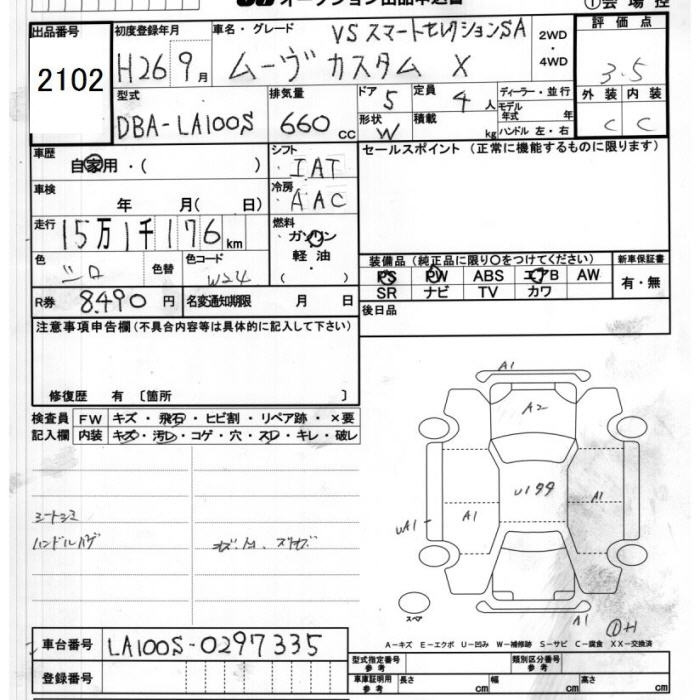 オークション出品申込書
①会場控
出品番号 初度登録年月 車名・グレード VS スマートセレクションSA 2WD・4WD 評価点
2102 H26 9月 ムーヴ カスタム X 3.5
型式 排気量 ドア 5 定員 4人 ディーラー・並行 外装 内装
DBA-LA100S 660cc 形状 W 積載 kg モデル年式 年 ハンドル 左・右 C C
車歴 自家用・( ) シフト IAT セールスポイント (正常に機能するものに限ります)
車検 年 月( 日) 冷房 AAC
走行 15万1千176km 燃料 ガソリン 軽油 ・( )
色 シロ 色替 色コード W24 装備品 (純正品に限り○をつけてください) 新車保証書
PS PW ABS エアB AW 有・無
SR ナビ TV カワ
R券 8,490円 名変通知期限 月 日 後日品
注意事項申告欄 (不具合内容等は具体的に記入して下さい)
修復歴 有 〔箇所 〕
検査員 FW キズ・飛石・ヒビ割・リペア跡・×要
記入欄 内装 キズ・汚レ・コゲ・穴・スレ・キレ・破レ
シートシミ
ハンドルハゲ
A1
A2
U199
A1 A1
UA1
A1
スペア
①H1
A-キズ E-エクボ U-凹み W-補修跡 S-サビ C-腐食 XX-交換済
車台番号 LA100S-0297335 型式指定番号 参考 類別区分番号 参考
登録番号 車庫証明用 参考 長さ cm 幅 cm 高さ cm